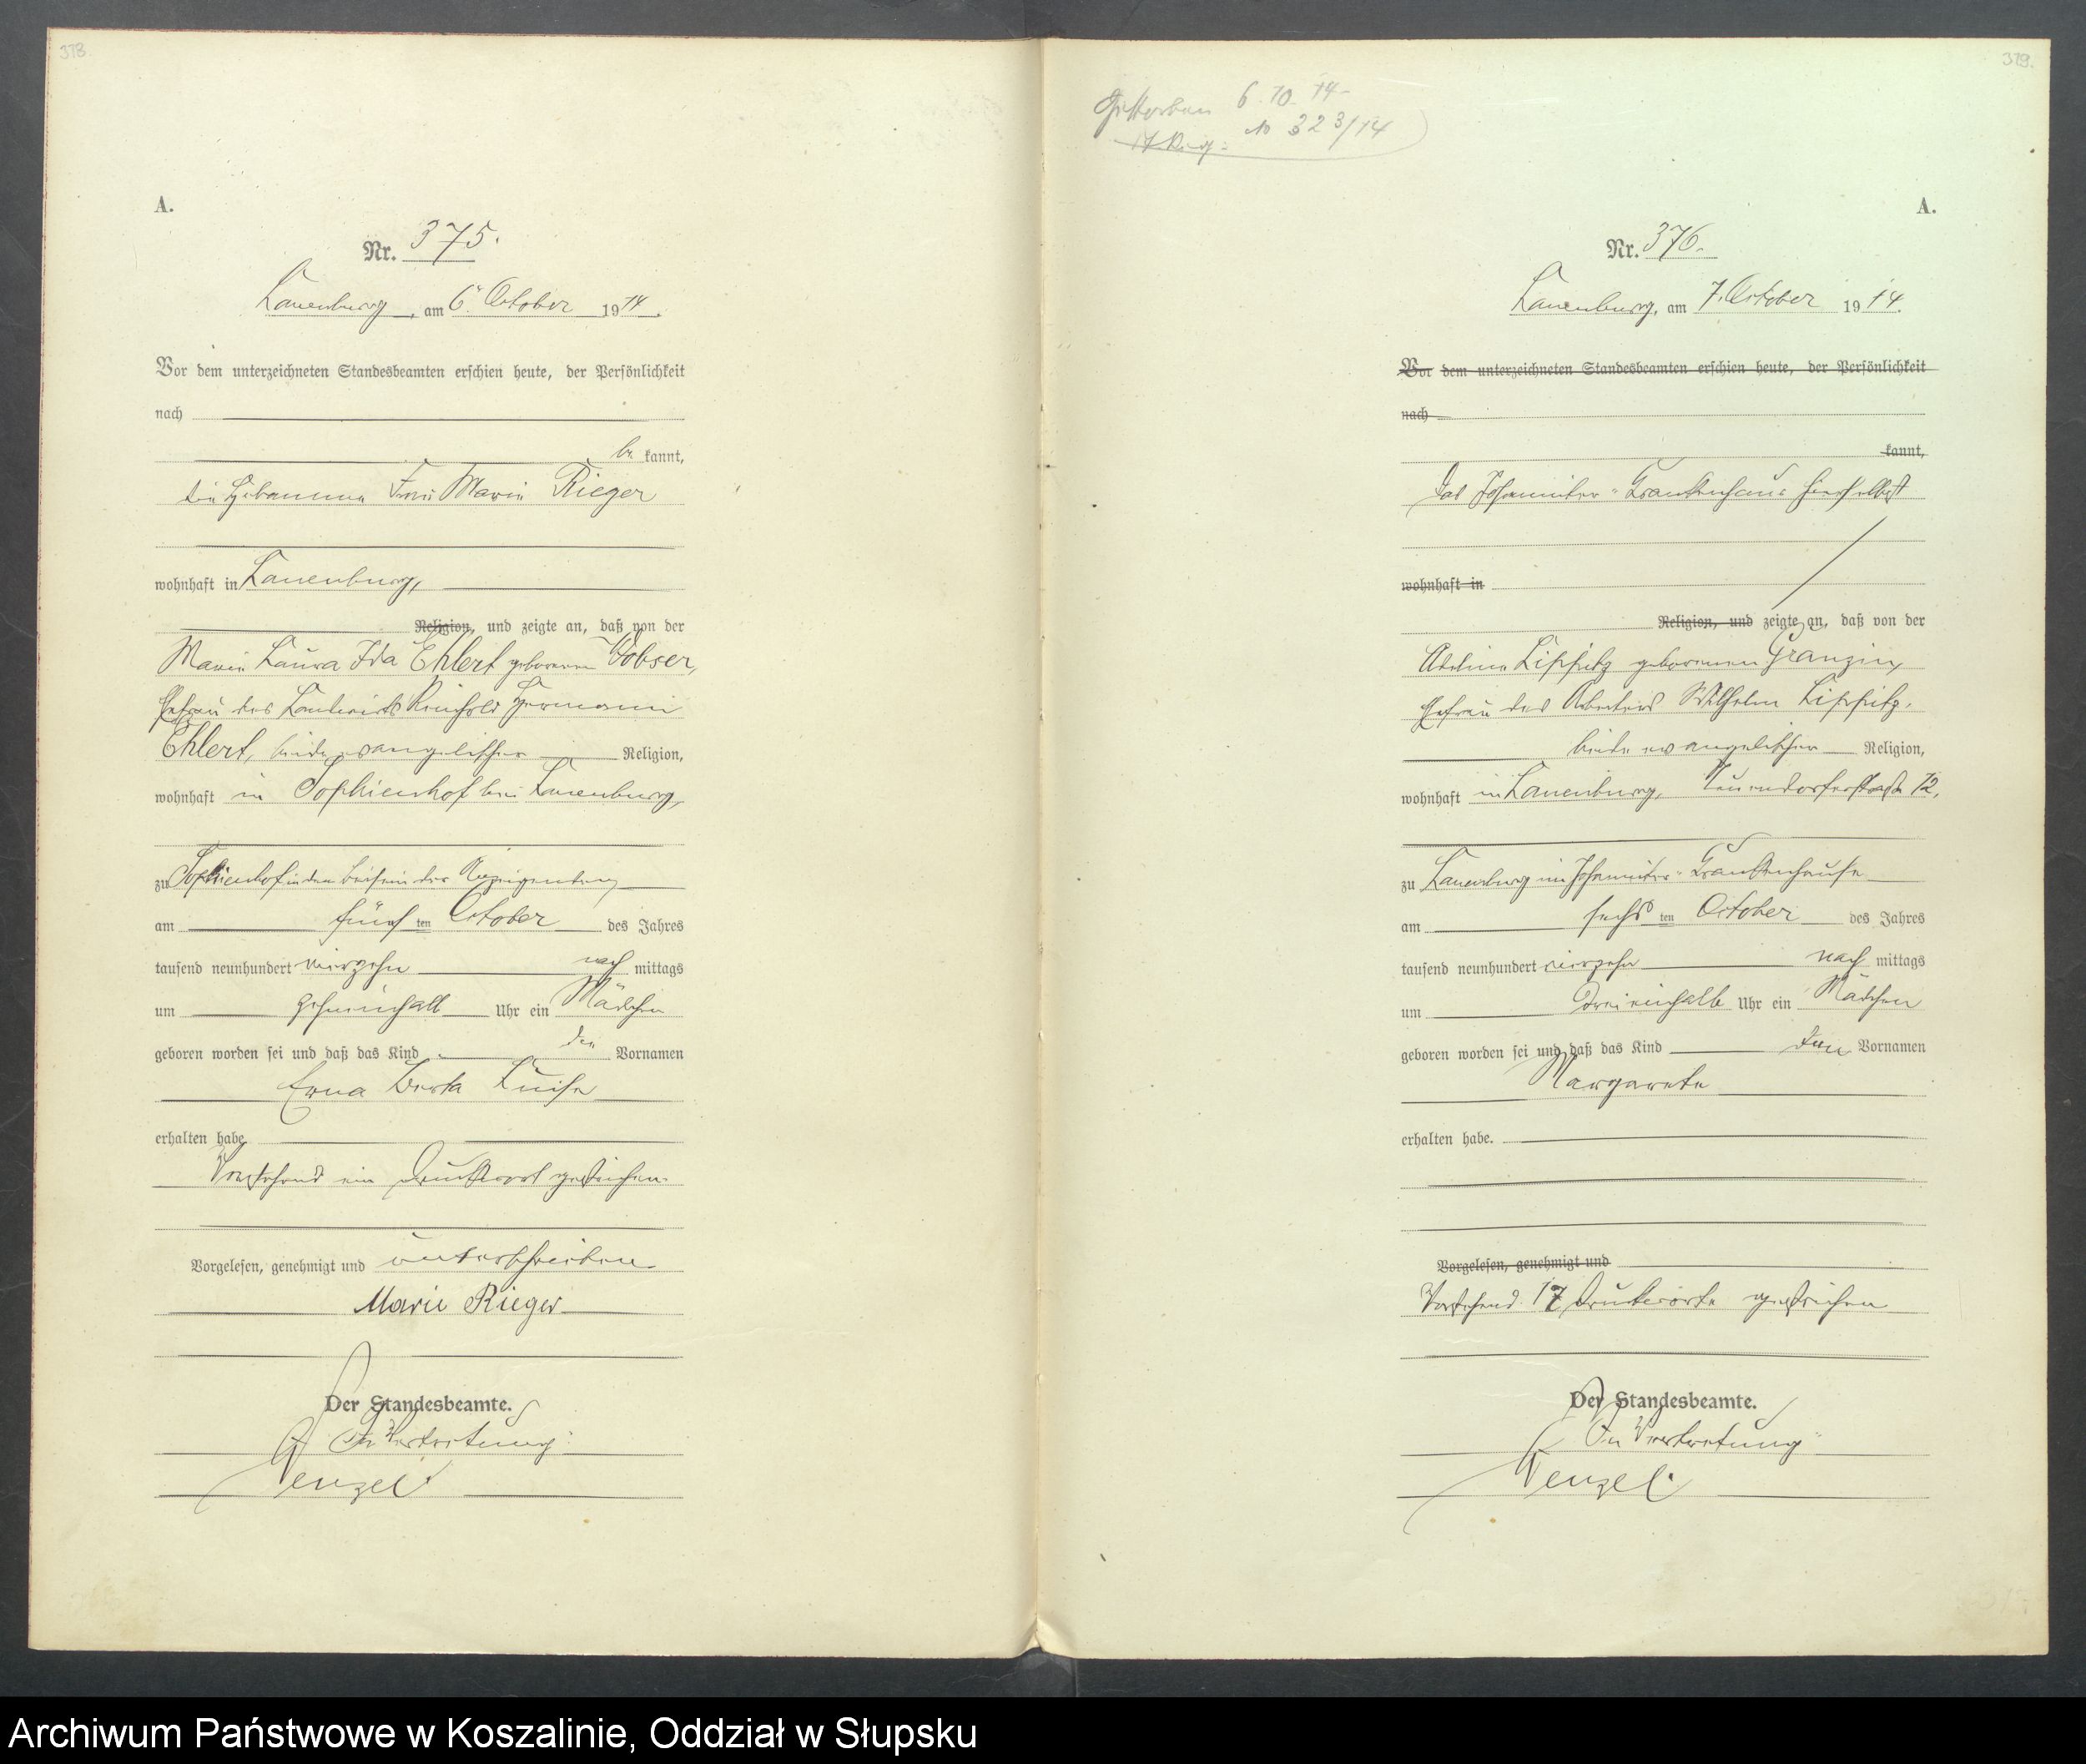 378.
A.
Nr. 375.
Lauenburg, am 6. October 1914.
Vor dem unterzeichneten Standesbeamten erschien heute, der Persönlichkeit
nach
be kannt,
die Hebamme Frau Marie Rieger
wohnhaft in Lauenburg,
Religion, und zeigte an, daß von der
Marie Laura Ida Ehlert geborenen Wobser,
Ehefrau des Landwirts Reinhold Hermann
Ehlert, beide evangelischer Religion,
wohnhaft in Sophienhof bei Lauenburg,
zu Sophienhof in dem Beisein der Anzeigenden,
am fünf ten October des Jahres
tausend neunhundert vierzehn nach mittags
um zehneinhalb Uhr ein Mädchen
geboren worden sei und daß das Kind den Vornamen
Erna Berta Luise
erhalten habe
Vorstehend ein Druckwort gestrichen.
Vorgelesen, genehmigt und unterschrieben
Marie Rieger
Der Standesbeamte.
In Vertretung:
Wenzel.
379.
Gestorben 6.10.14
No 323/14
A.
Nr. 376.
Lauenburg, am 7. October 1914.
Vor dem unterzeichneten Standesbeamten erschien heute, der Persönlichkeit
nach
kannt,
Das Johanniter-Krankenhaus hierselbst
wohnhaft in
Religion, und zeigte an, daß von der
Adeline Lippitz geborenen Granzin,
Ehefrau des Arbeiters Wilhelm Lippitz,
beide evangelischer Religion,
wohnhaft in Lauenburg, Neuendorferstraße 72,
zu Lauenburg im Johanniter-Krankenhause
am sechs ten October des Jahres
tausend neunhundert vierzehn nach mittags
um dreieinhalb Uhr ein Mädchen
geboren worden sei und daß das Kind den Vornamen
Margarete
erhalten habe.
Vorgelesen, genehmigt und
Vorstehend 17 Druckworte gestrichen
Der Standesbeamte.
In Vertretung
Wenzel.
Archiwum Państwowe w Koszalinie, Oddział w Słupsku